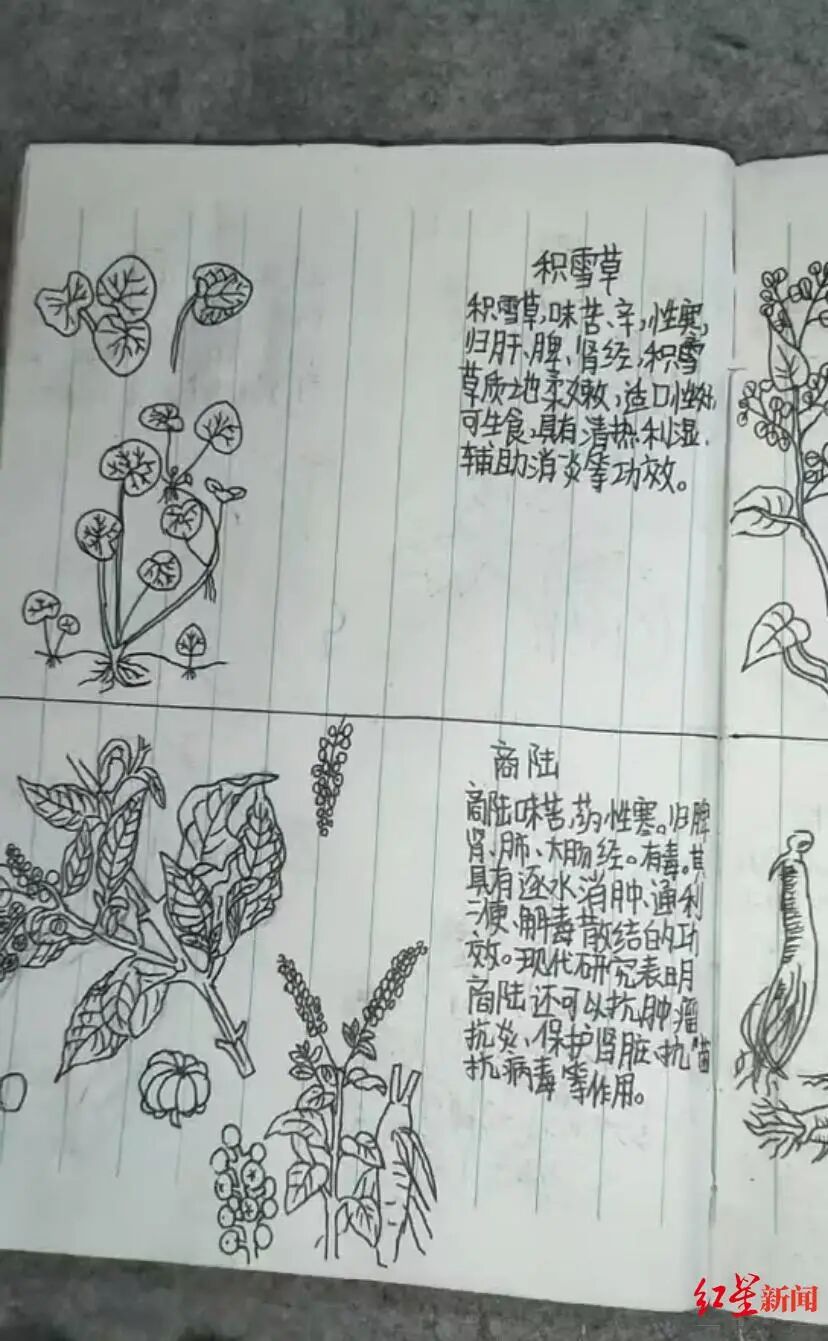 积雪草
积雪草,味苦、辛,性寒,
归肝、脾、肾经,积雪
草质地柔嫩,适口性好,
可生食,具有清热利湿、
辅助消炎等功效。
商陆
商陆味苦,药性寒。归脾
肾、肺、大肠经。有毒。其
具有逐水消肿、通利
二便、解毒散结的功
效。现代研究表明
商陆还可以抗肿瘤
抗炎、保护肾脏、抗菌
抗病毒等作用。
红星新闻